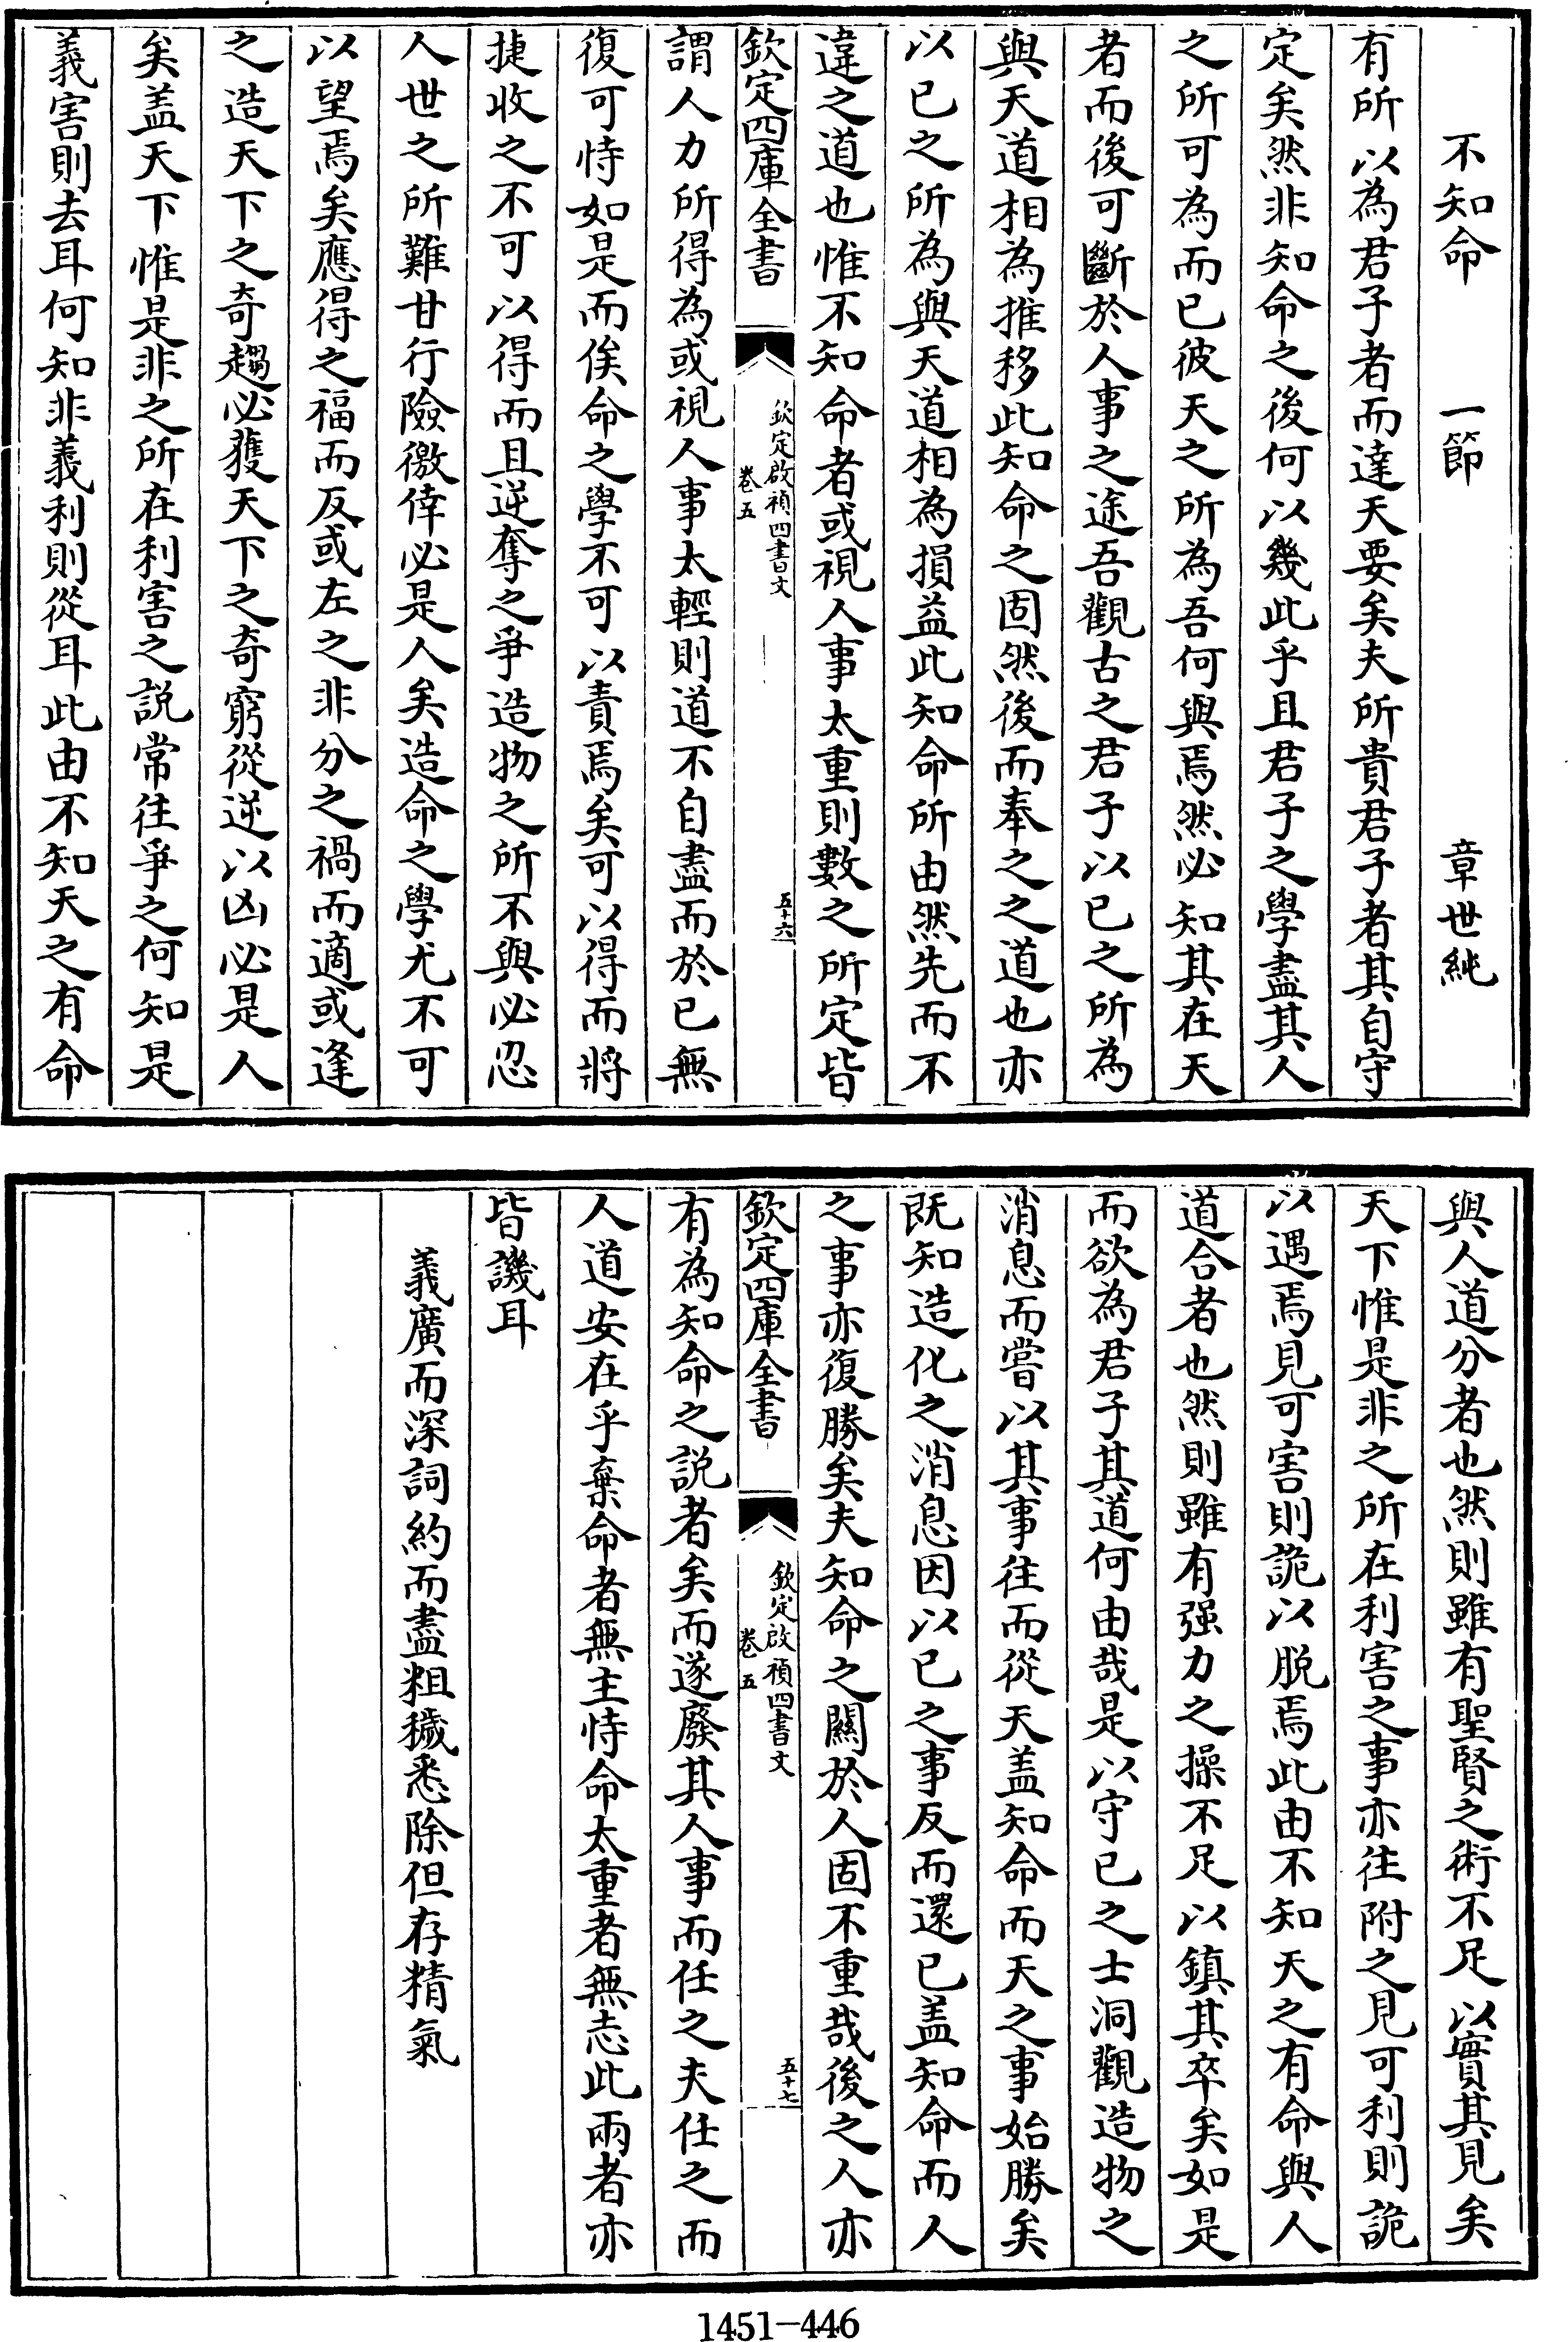 不知命　一節　章世純
有所以為君子者而達天要矣夫所貴君子者其自守
定矣然非知命之後何以幾此乎且君子之學盡其人
之所可為而已彼天之所為吾何與焉然必知其在天
者而後可斷於人事之途吾觀古之君子以已之所為
與天道相為推移此知命之固然後而奉之之道也亦
以已之所為與天道相為損益此知命所由然先而不
違之道也惟不知命者或視人事太重則數之所定皆
欽定四庫全書
欽定啟禎四書文
卷五
五十六
謂人力所得為或視人事太輕則道不自盡而於已無
復可恃如是而俟命之學不可以責焉矣可以得而將
捷收之不可以得而且逆奪之爭造物之所不與必忍
人世之所難甘行險徼倖必是人矣造命之學尤不可
以望焉矣應得之福而反或左之非分之禍而適或逢
之造天下之奇趨必獲天下之奇窮從逆以凶必是人
矣盖天下惟是非之所在利害之說常往爭之何知是
義害則去耳何知非義利則從耳此由不知天之有命
與人道分者也然則雖有聖賢之術不足以實其見矣
天下惟是非之所在利害之事亦往附之見可利則詭
以遇焉見可害則詭以脱焉此由不知天之有命與人
道合者也然則雖有强力之操不足以鎮其卒矣如是
而欲為君子其道何由哉是以守已之士洞觀造物之
消息而嘗以其事往而從天盖知命而天之事始勝矣
既知造化之消息因以已之事反而還已盖知命而人
之事亦復勝矣夫知命之關於人固不重哉後之人亦
欽定四庫全書
欽定啟禎四書文
卷五
五十七
有為知命之說者矣而遂廢其人事而任之夫任之而
人道安在乎棄命者無主恃命太重者無志此兩者亦
皆譏耳
義廣而深詞約而盡粗穢悉除但存精氣
1451-446